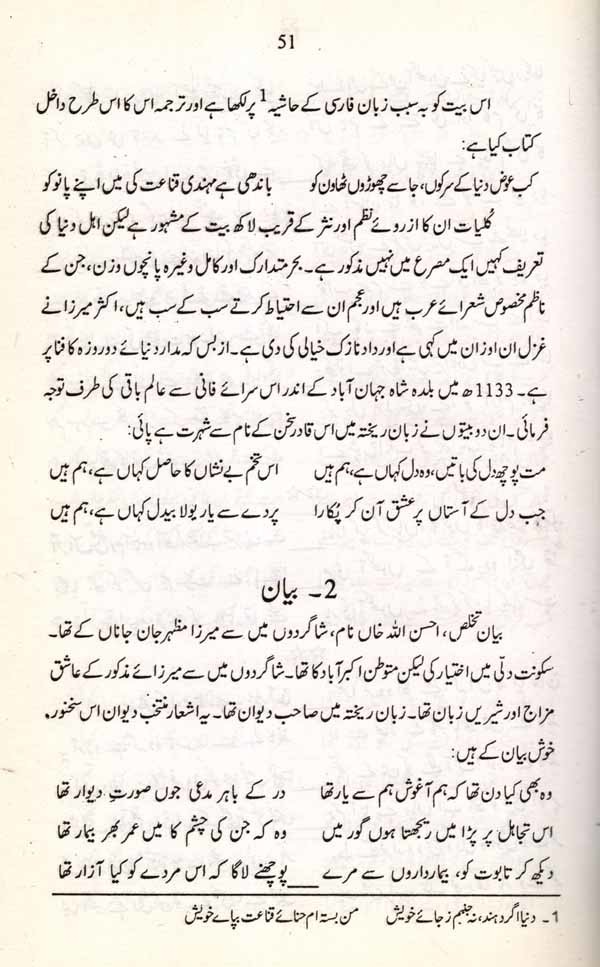 51
اس بیت کو بہ سبب زبان فارسی کے حاشیہ 1 پر لکھا ہے اور ترجمہ اس کا اس طرح داخل
کتاب کیا ہے:
کب عوض دنیا کے سرکوں، جا سے چھوڑوں ٹھاون کو باندھی ہے مہندی قناعت کی میں اپنے پانو کو
کلیات ان کا از روئے نظم اور نثر کے قریب لاکھ بیت کے مشہور ہے لیکن اہل دنیا کی
تعریف کہیں ایک مصرع میں نہیں مذکور ہے۔ بحر متدارک اور کامل وغیرہ پانچوں وزن، جن کے
ناظم مخصوص شعرائے عرب ہیں اور عجم ان سے احتیاط کرتے سب کے سب ہیں، اکثر میرزا نے
غزل ان اوزان میں کہی ہے اور داد نازک خیالی کی دی ہے۔ از بس کہ مدار دنیائے دو روزہ کا فنا پر
ہے۔ 1133ھ میں بلدہ شاہ جہان آباد کے اندر اس سرائے فانی سے عالم باقی کی طرف توجہ
فرمائی۔ ان دو بیتوں نے زبان ریختہ میں اس قادر سخن کے نام سے شہرت ہے پائی:
مت پوچھ دل کی باتیں، وہ دل کہاں ہے، ہم ہیں اس تخم بے نشاں کا حاصل کہاں ہے، ہم ہیں
جب دل کے آستاں پر عشق آن کر پکارا پردے سے یار بولا بیدل کہاں ہے، ہم ہیں
2۔ بیان
بیان تخلص، احسن اللہ خاں نام، شاگردوں میں سے میرزا مظہر جان جاناں کے تھا۔
سکونت دلّی میں اختیار کی لیکن متوطن اکبر آباد کا تھا۔ شاگردوں میں سے میرزائے مذکور کے عاشق
مزاج اور شیریں زبان تھا۔ زبان ریختہ میں صاحب دیوان تھا۔ یہ اشعار منتخب دیوان اس سخنور
خوش بیان کے ہیں:
وہ بھی کیا دن تھا کہ ہم آغوش ہم سے یار تھا در کے باہر مدعی جوں صورتِ دیوار تھا
اس تجاہل پر پڑا میں ریجھتا ہوں گور میں وہ کہ جن کی چشم کا میں عمر بھر بیمار تھا
دیکھ کر تابوت کو، بیمارداروں سے مرے پوچھنے لاگا کہ اس مردے کو کیا آزار تھا
1۔ دنیا اگر دہند، نہ جنبم ز جائے خویش من بستہ ام حنائے قناعت بپائے خویش